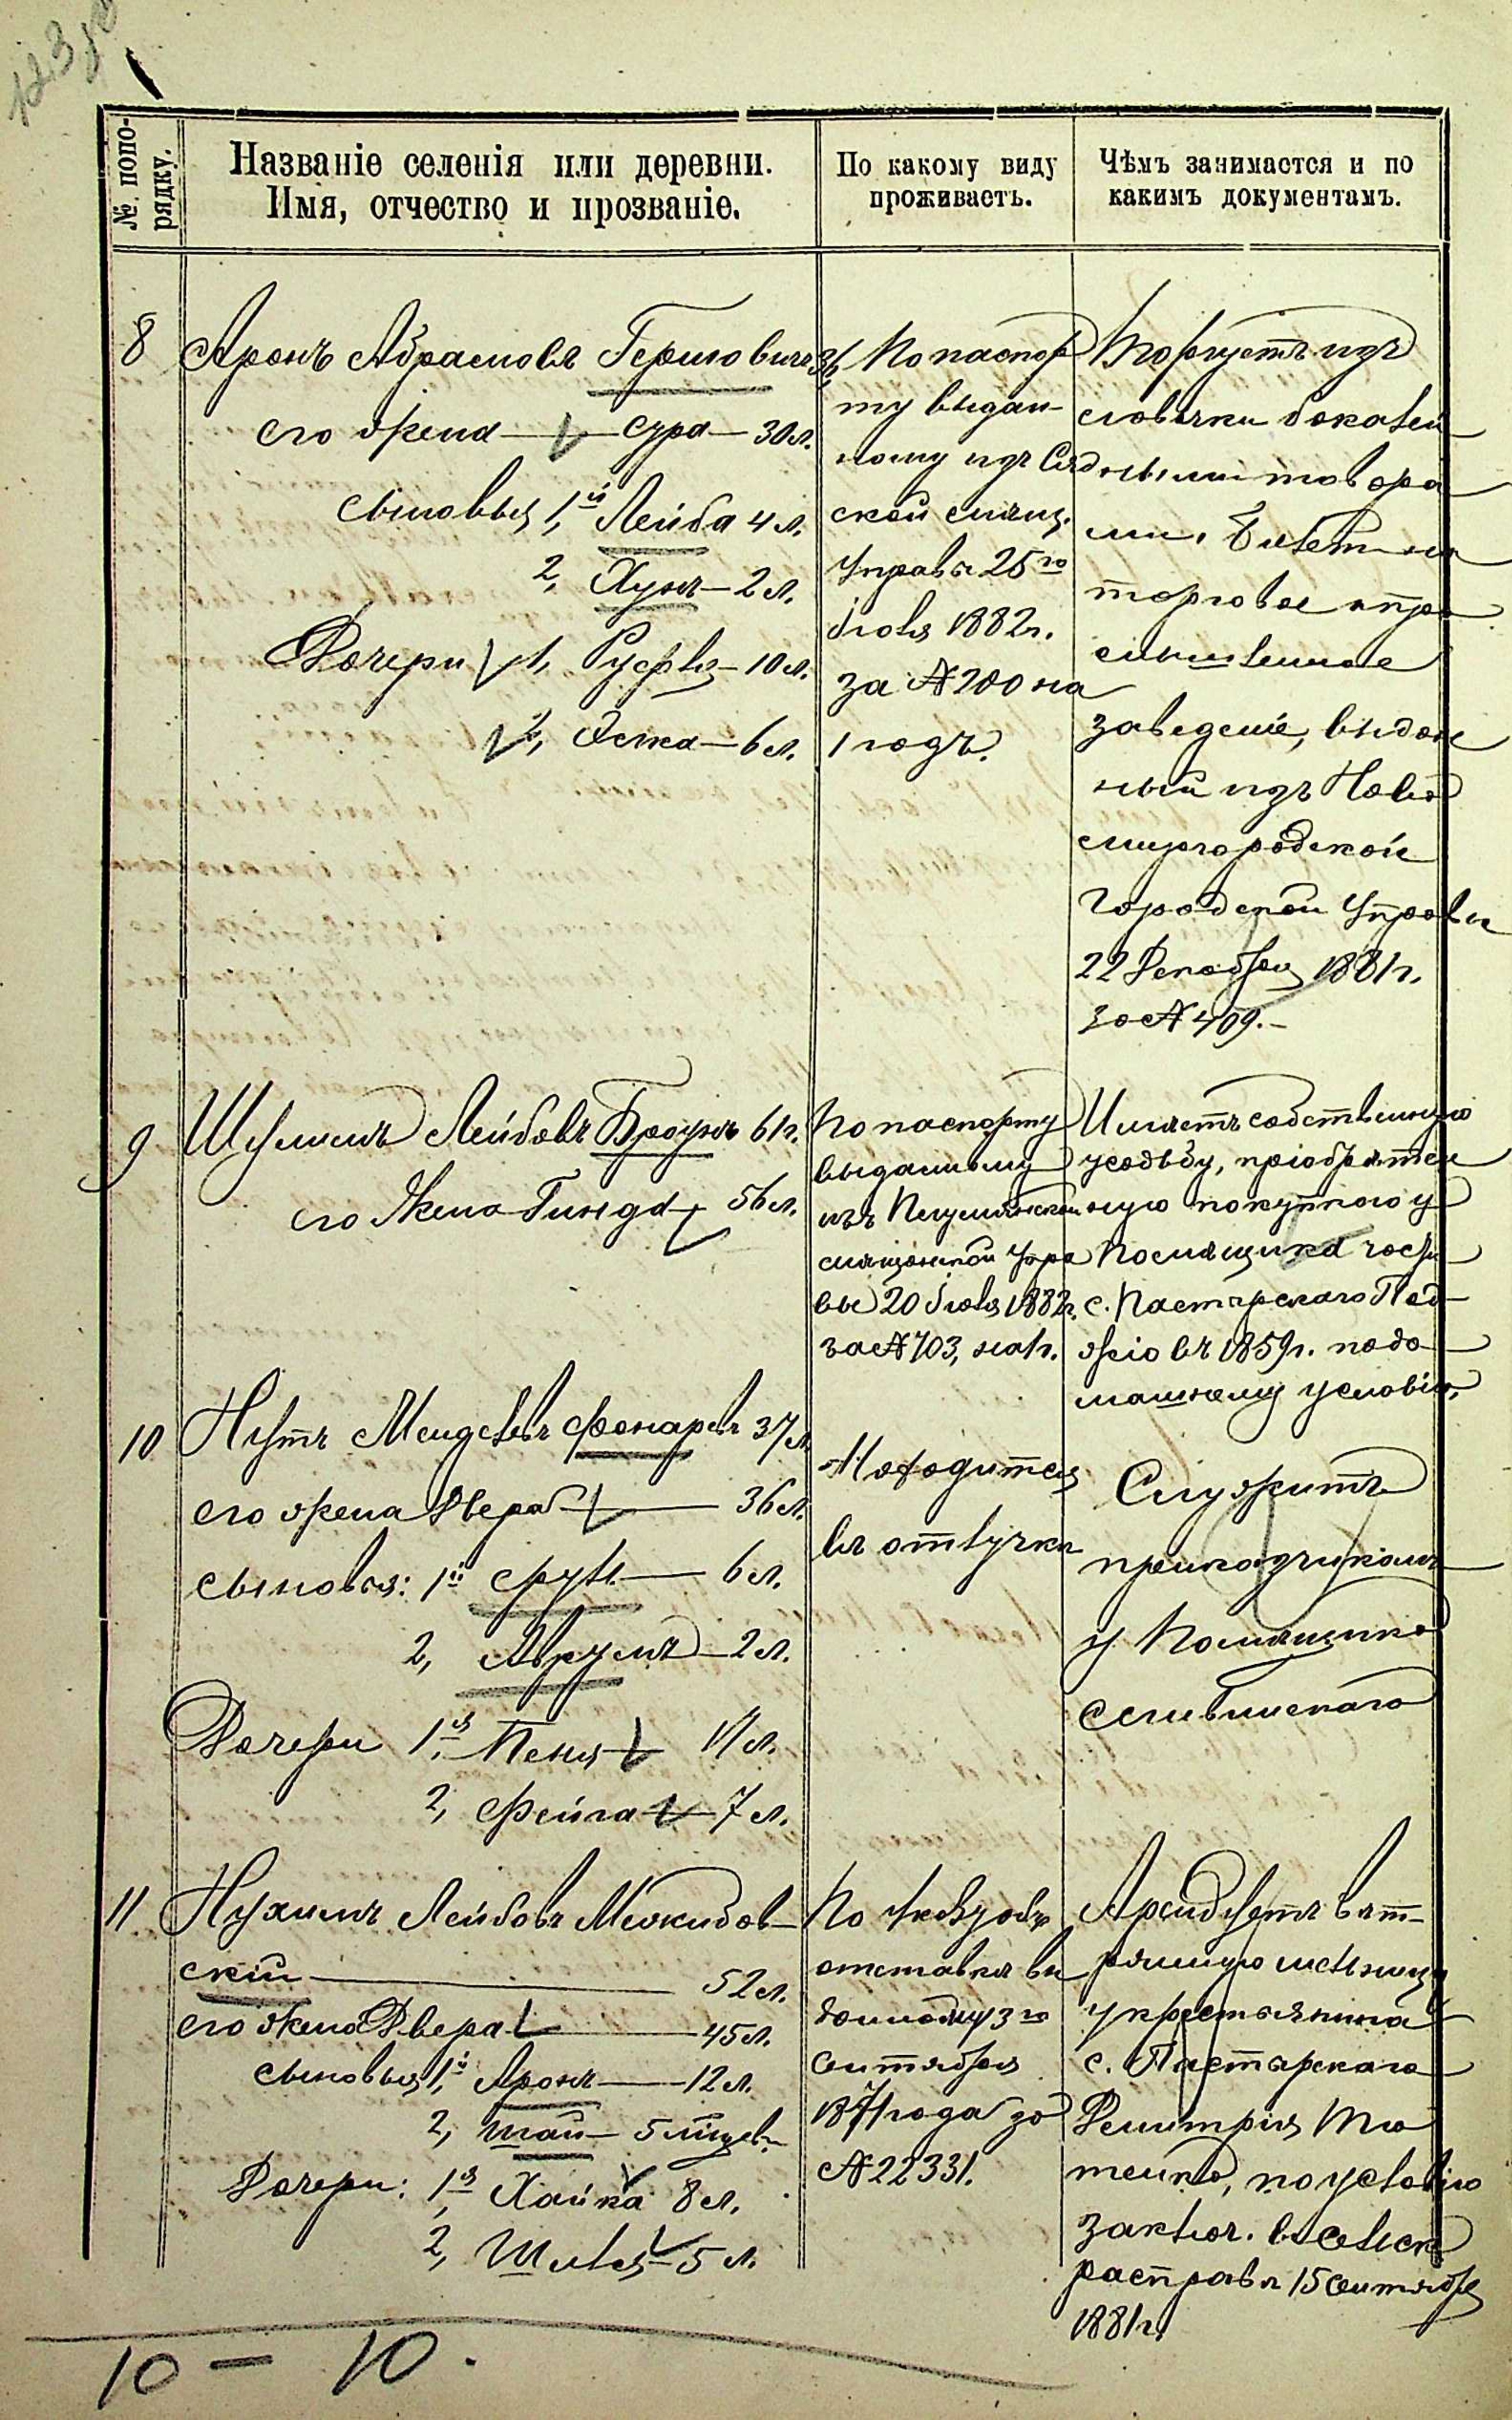 № попо-
рядку.
Названіе селенія или деревни.
Имя, отчество и прозваніе.
По какому виду
проживаетъ.
Чѣмъ занимается и по
какимъ документамъ.
8
Аронъ Абрамовъ Гершовичъ
его жена — Сура — 30 л.
сыновья 1й Лейба 4 л.
2, Хунъ — 2 л.
Дочери 1, Рухля — 10 л.
2, Эстка — 6 л.
По паспор
ту выдан-
ному изъ
ской мѣщ.
Управы 25го
Іюля 1882 г.
за № 200 на
1 годъ.
Торгуетъ изъ
лавочки бокалей
ными товара
ми. Билетъ на
торговое и про
мышленное
заведеніе, выдан
ный изъ Ново
миргородской
Городской Управы
22 Декабря 1881 г.
за № 409. —
9
Шулимъ Лейбовъ Броунъ 61 г.
его Жена Гинда 56 л.
По паспорту
выданному
изъ
мѣщанской Упра
вы 20 Іюля 1882 г.
за № 703, на 1 г.
Имѣетъ собственную
усадьбу, пріобрѣтен
ную покупкою у
Помѣщика
с. Пастырскаго Под
въ 1859 г. по до-
машнему условію.
10
Нутъ Менделевъ Фонаревъ 37 л.
его жена Двера — 36 л.
сыновья: 1й Сруль — 6 л.
2, Аврумъ — 2 л.
Дочери 1я Пеня — 11 л.
2, Фейга — 7 л.
Находится
въ отлучкѣ
Служитъ
прикащикомъ
у Помѣщика
11
Нухимъ Лейбовъ
скій — 52 л.
его жена Двера — 45 л.
сыновья 1й Аронъ — 12 л.
2, Шая — 5
Дочери: 1я Хайка 8 л.
2, Шиля — 5 л.
По указу объ
отставкѣ вы
данному 3го
Сентября
1871 года за
№ 22331.
Арендуетъ вѣт-
рянную мельницу
у крестьянина
с. Пастырскаго
Димитрія Тю
тенка, по условію
заключ. въ сельск.
расправѣ 15 Сентября
1881 г.
10 — 10.